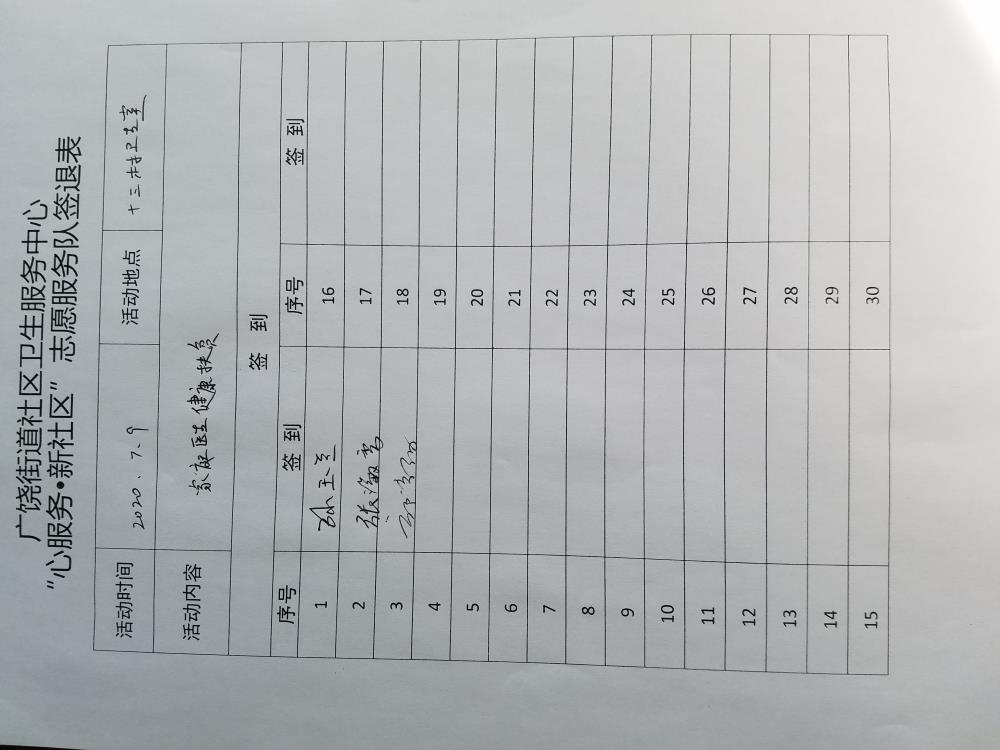 广饶街道社区卫生服务中心
“心服务•新社区”志愿服务队签退表
活动时间 2020.7.9 活动地点 十三村卫生室
活动内容 家庭医生健康扶贫
签 到
序号 签 到 序号 签 到
1 16
2 17
3 18
4 19
5 20
6 21
7 22
8 23
9 24
10 25
11 26
12 27
13 28
14 29
15 30